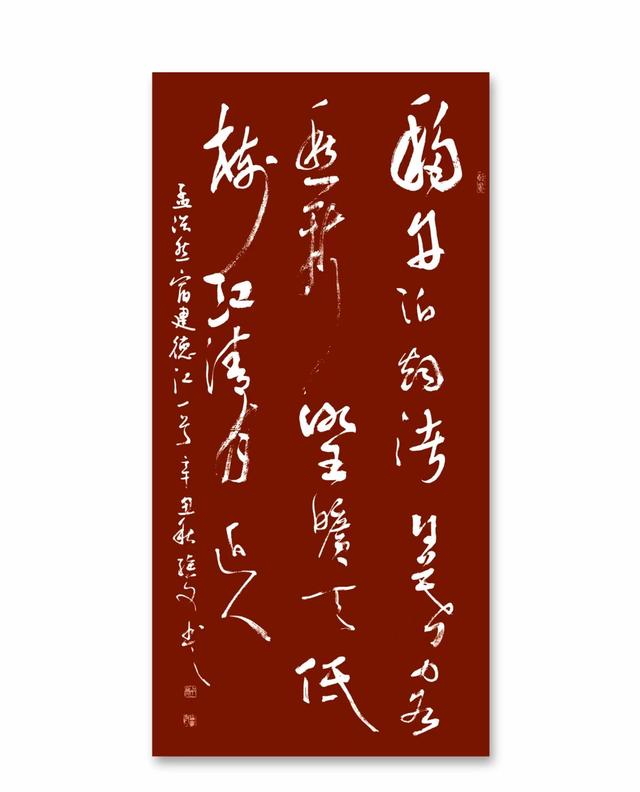 移舟泊烟渚日暮客
愁新野曠天低
树江清月近人
孟浩然宿建德江一首辛丑秋文书